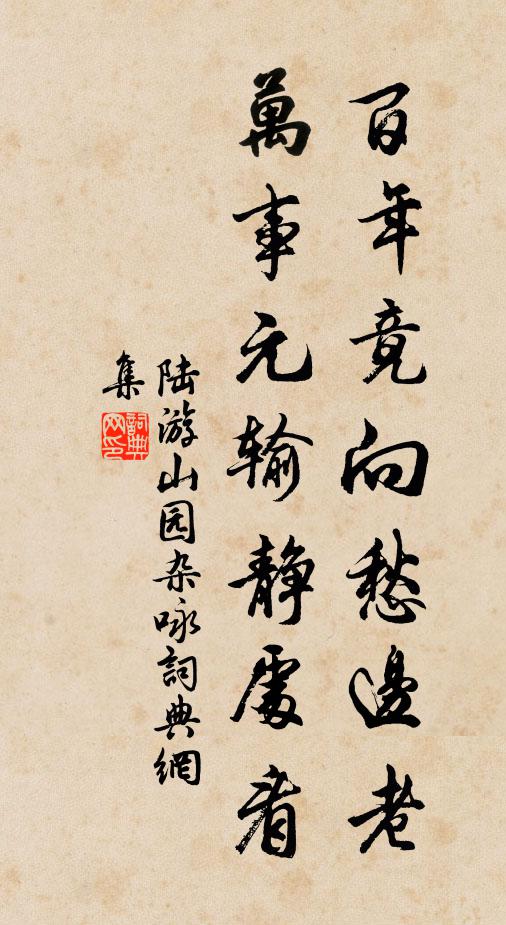 百年竟向愁邊老
萬事元输静處看
陆游山园杂咏詞典網
集
詞典
网印